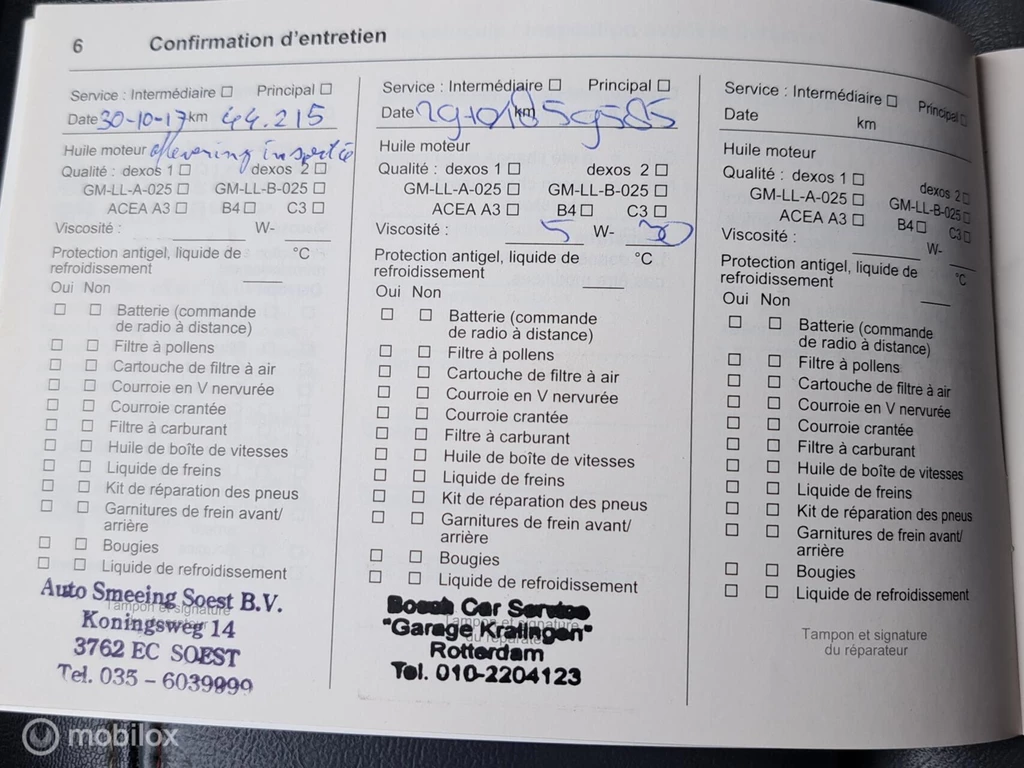 6 Confirmation d'entretien
Service : Intermédiaire ☐ Principal ☐
Date 30-10-17 km 44.215
Huile moteur aflevering inspectie
Qualité : dexos 1 ☐ dexos 2 ☐
GM-LL-A-025 ☐ GM-LL-B-025 ☐
ACEA A3 ☐ B4 ☐ C3 ☐
Viscosité : W-
Protection antigel, liquide de °C
refroidissement
Oui Non
☐ ☐ Batterie (commande
de radio à distance)
☐ ☐ Filtre à pollens
☐ ☐ Cartouche de filtre à air
☐ ☐ Courroie en V nervurée
☐ ☐ Courroie crantée
☐ ☐ Filtre à carburant
☐ ☐ Huile de boîte de vitesses
☐ ☐ Liquide de freins
☐ ☐ Kit de réparation des pneus
☐ ☐ Garnitures de frein avant/
arrière
☐ ☐ Bougies
☐ ☐ Liquide de refroidissement
Auto Smeeing Soest B.V.
Tampon et signature
Koningsweg 14
3762 EC SOEST
Tel. 035 - 6039999
Service : Intermédiaire ☐ Principal ☐
Date km 59585
Huile moteur
Qualité : dexos 1 ☐ dexos 2 ☐
GM-LL-A-025 ☐ GM-LL-B-025 ☐
ACEA A3 ☐ B4 ☐ C3 ☐
Viscosité : 5 W- 30
Protection antigel, liquide de °C
refroidissement
Oui Non
☐ ☐ Batterie (commande
de radio à distance)
☐ ☐ Filtre à pollens
☐ ☐ Cartouche de filtre à air
☐ ☐ Courroie en V nervurée
☐ ☐ Courroie crantée
☐ ☐ Filtre à carburant
☐ ☐ Huile de boîte de vitesses
☐ ☐ Liquide de freins
☐ ☐ Kit de réparation des pneus
☐ ☐ Garnitures de frein avant/
arrière
☐ ☐ Bougies
☐ ☐ Liquide de refroidissement
Bosch Car Service
Tampon et signature
"Garage Kralingen"
du réparateur
Rotterdam
Tel. 010-2204123
Service : Intermédiaire ☐ Principal ☐
Date km
Huile moteur
Qualité : dexos 1 ☐ dexos 2 ☐
GM-LL-A-025 ☐ GM-LL-B-025 ☐
ACEA A3 ☐ B4 ☐ C3 ☐
Viscosité : W-
Protection antigel, liquide de °C
refroidissement
Oui Non
☐ ☐ Batterie (commande
de radio à distance)
☐ ☐ Filtre à pollens
☐ ☐ Cartouche de filtre à air
☐ ☐ Courroie en V nervurée
☐ ☐ Courroie crantée
☐ ☐ Filtre à carburant
☐ ☐ Huile de boîte de vitesses
☐ ☐ Liquide de freins
☐ ☐ Kit de réparation des pneus
☐ ☐ Garnitures de frein avant/
arrière
☐ ☐ Bougies
☐ ☐ Liquide de refroidissement
Tampon et signature
du réparateur
mobilox